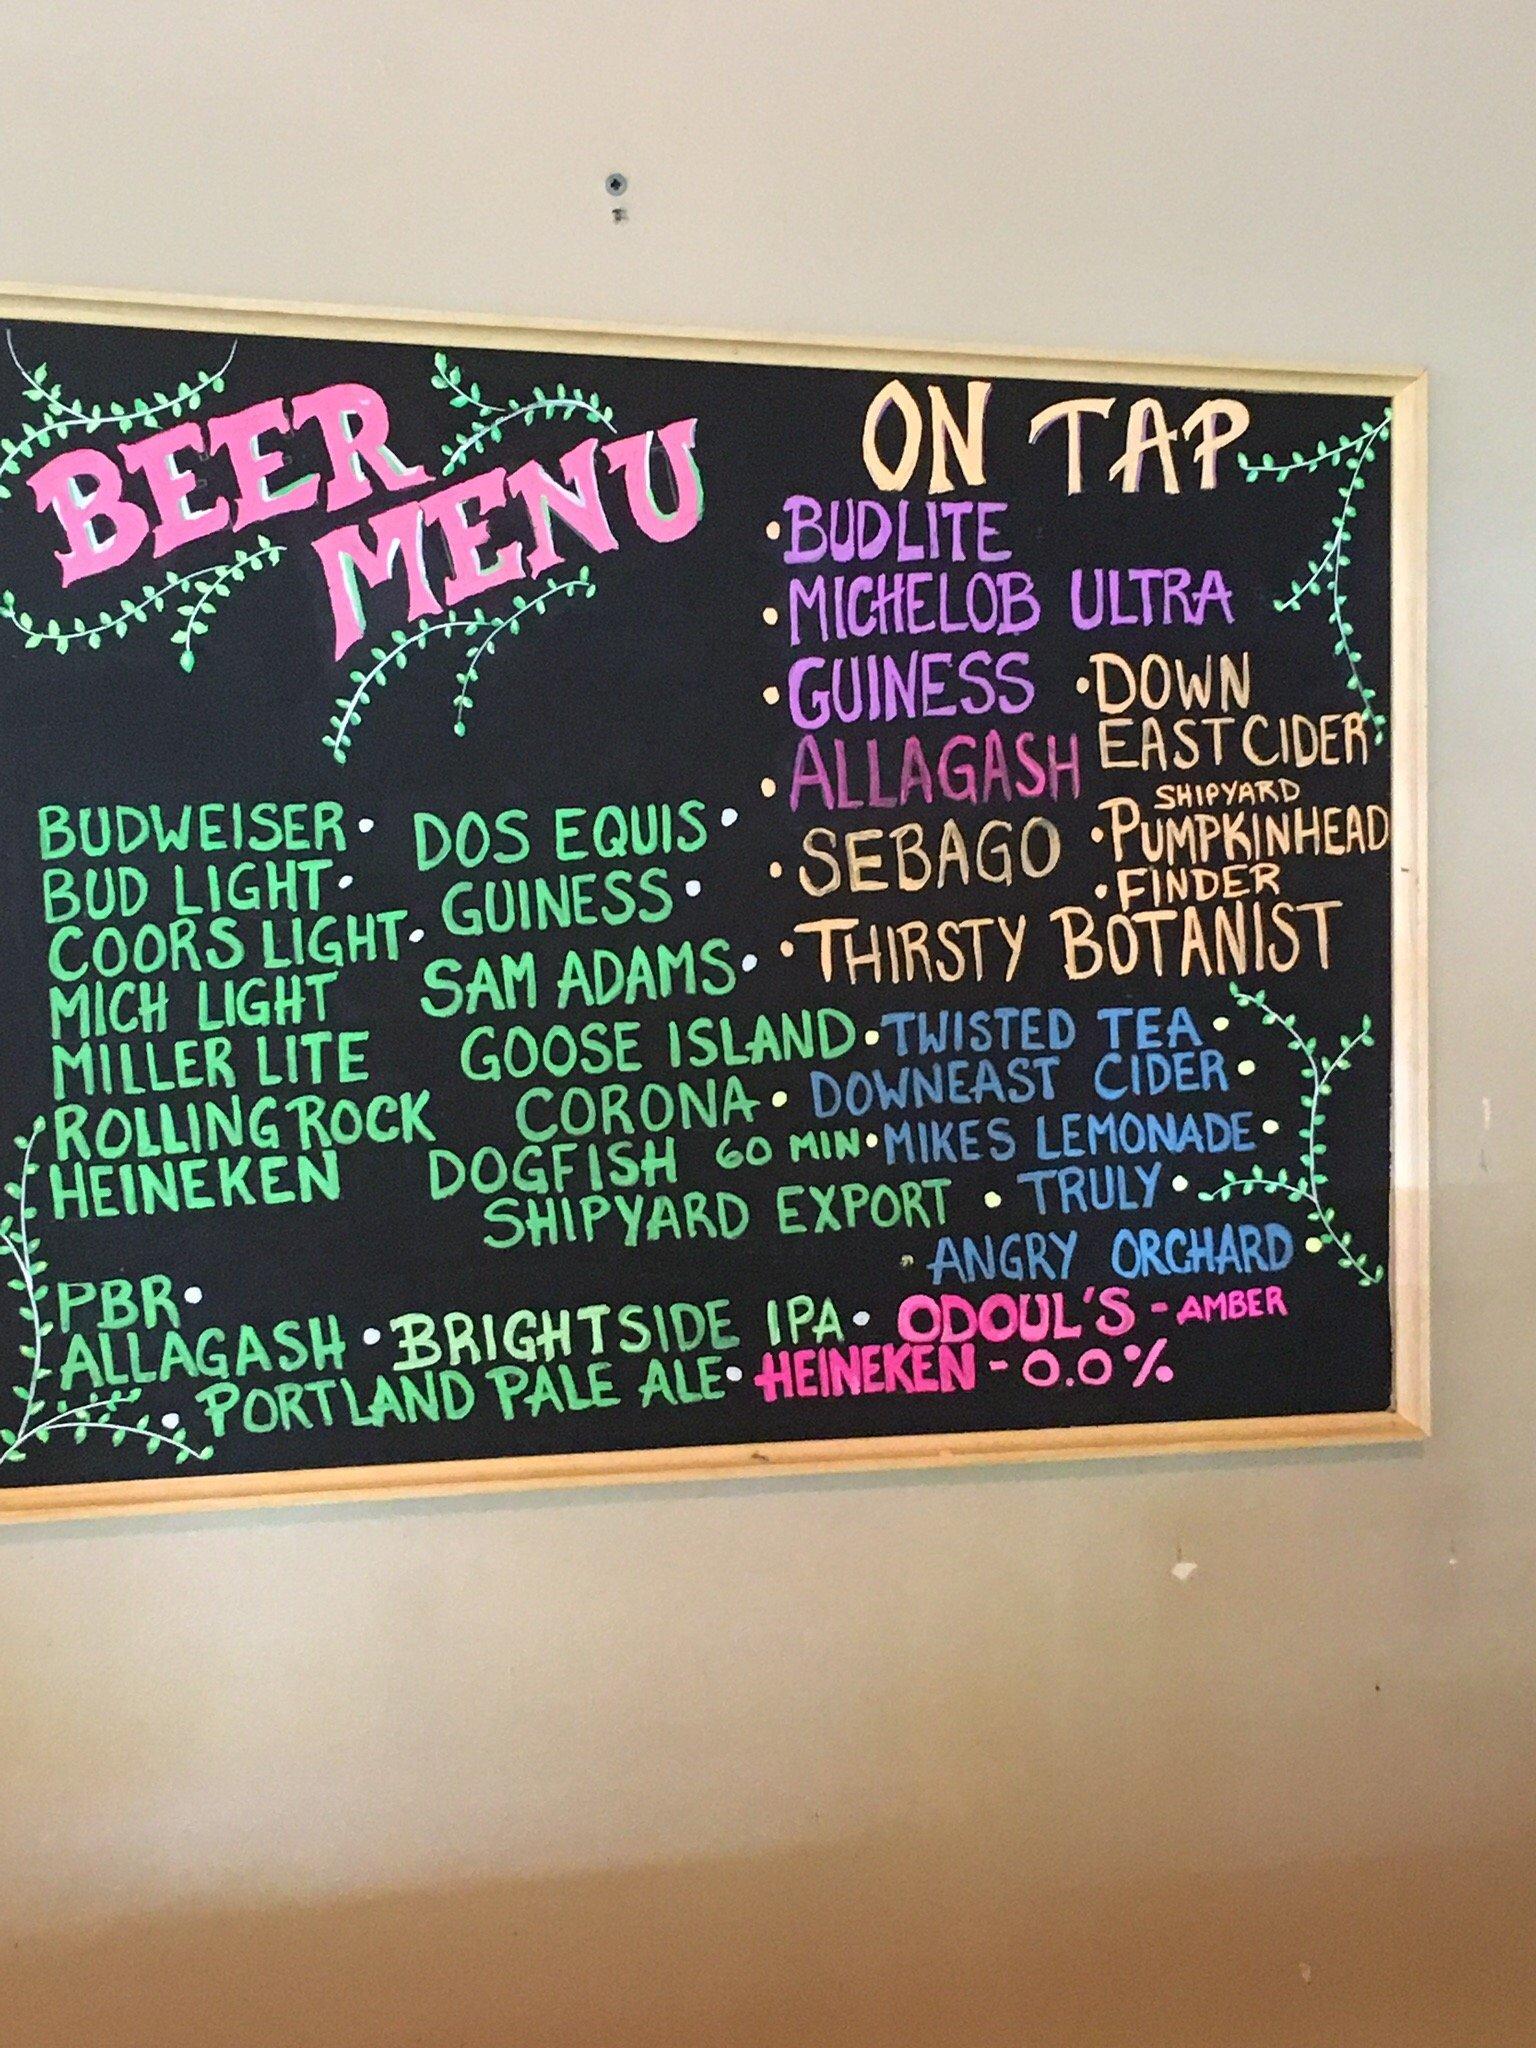 BEER
MENU
BUDWEISER
BUD LIGHT
COORS LIGHT
MICH LIGHT
MILLER LITE
ROLLING ROCK
HEINEKEN
PBR
ALLAGASH
DOS EQUIS
GUINESS
SAM ADAMS
GOOSE ISLAND
CORONA
DOGFISH 60 MIN
SHIPYARD EXPORT
BRIGHTSIDE IPA
PORTLAND PALE ALE
ON TAP
BUDLITE
MICHELOB ULTRA
GUINESS
ALLAGASH
SEBAGO
DOWN
EAST CIDER
SHIPYARD
PUMPKINHEAD
FINDER
THIRSTY BOTANIST
TWISTED TEA
DOWNEAST CIDER
MIKES LEMONADE
TRULY
ANGRY ORCHARD
ODOUL'S - AMBER
HEINEKEN - 0.0%